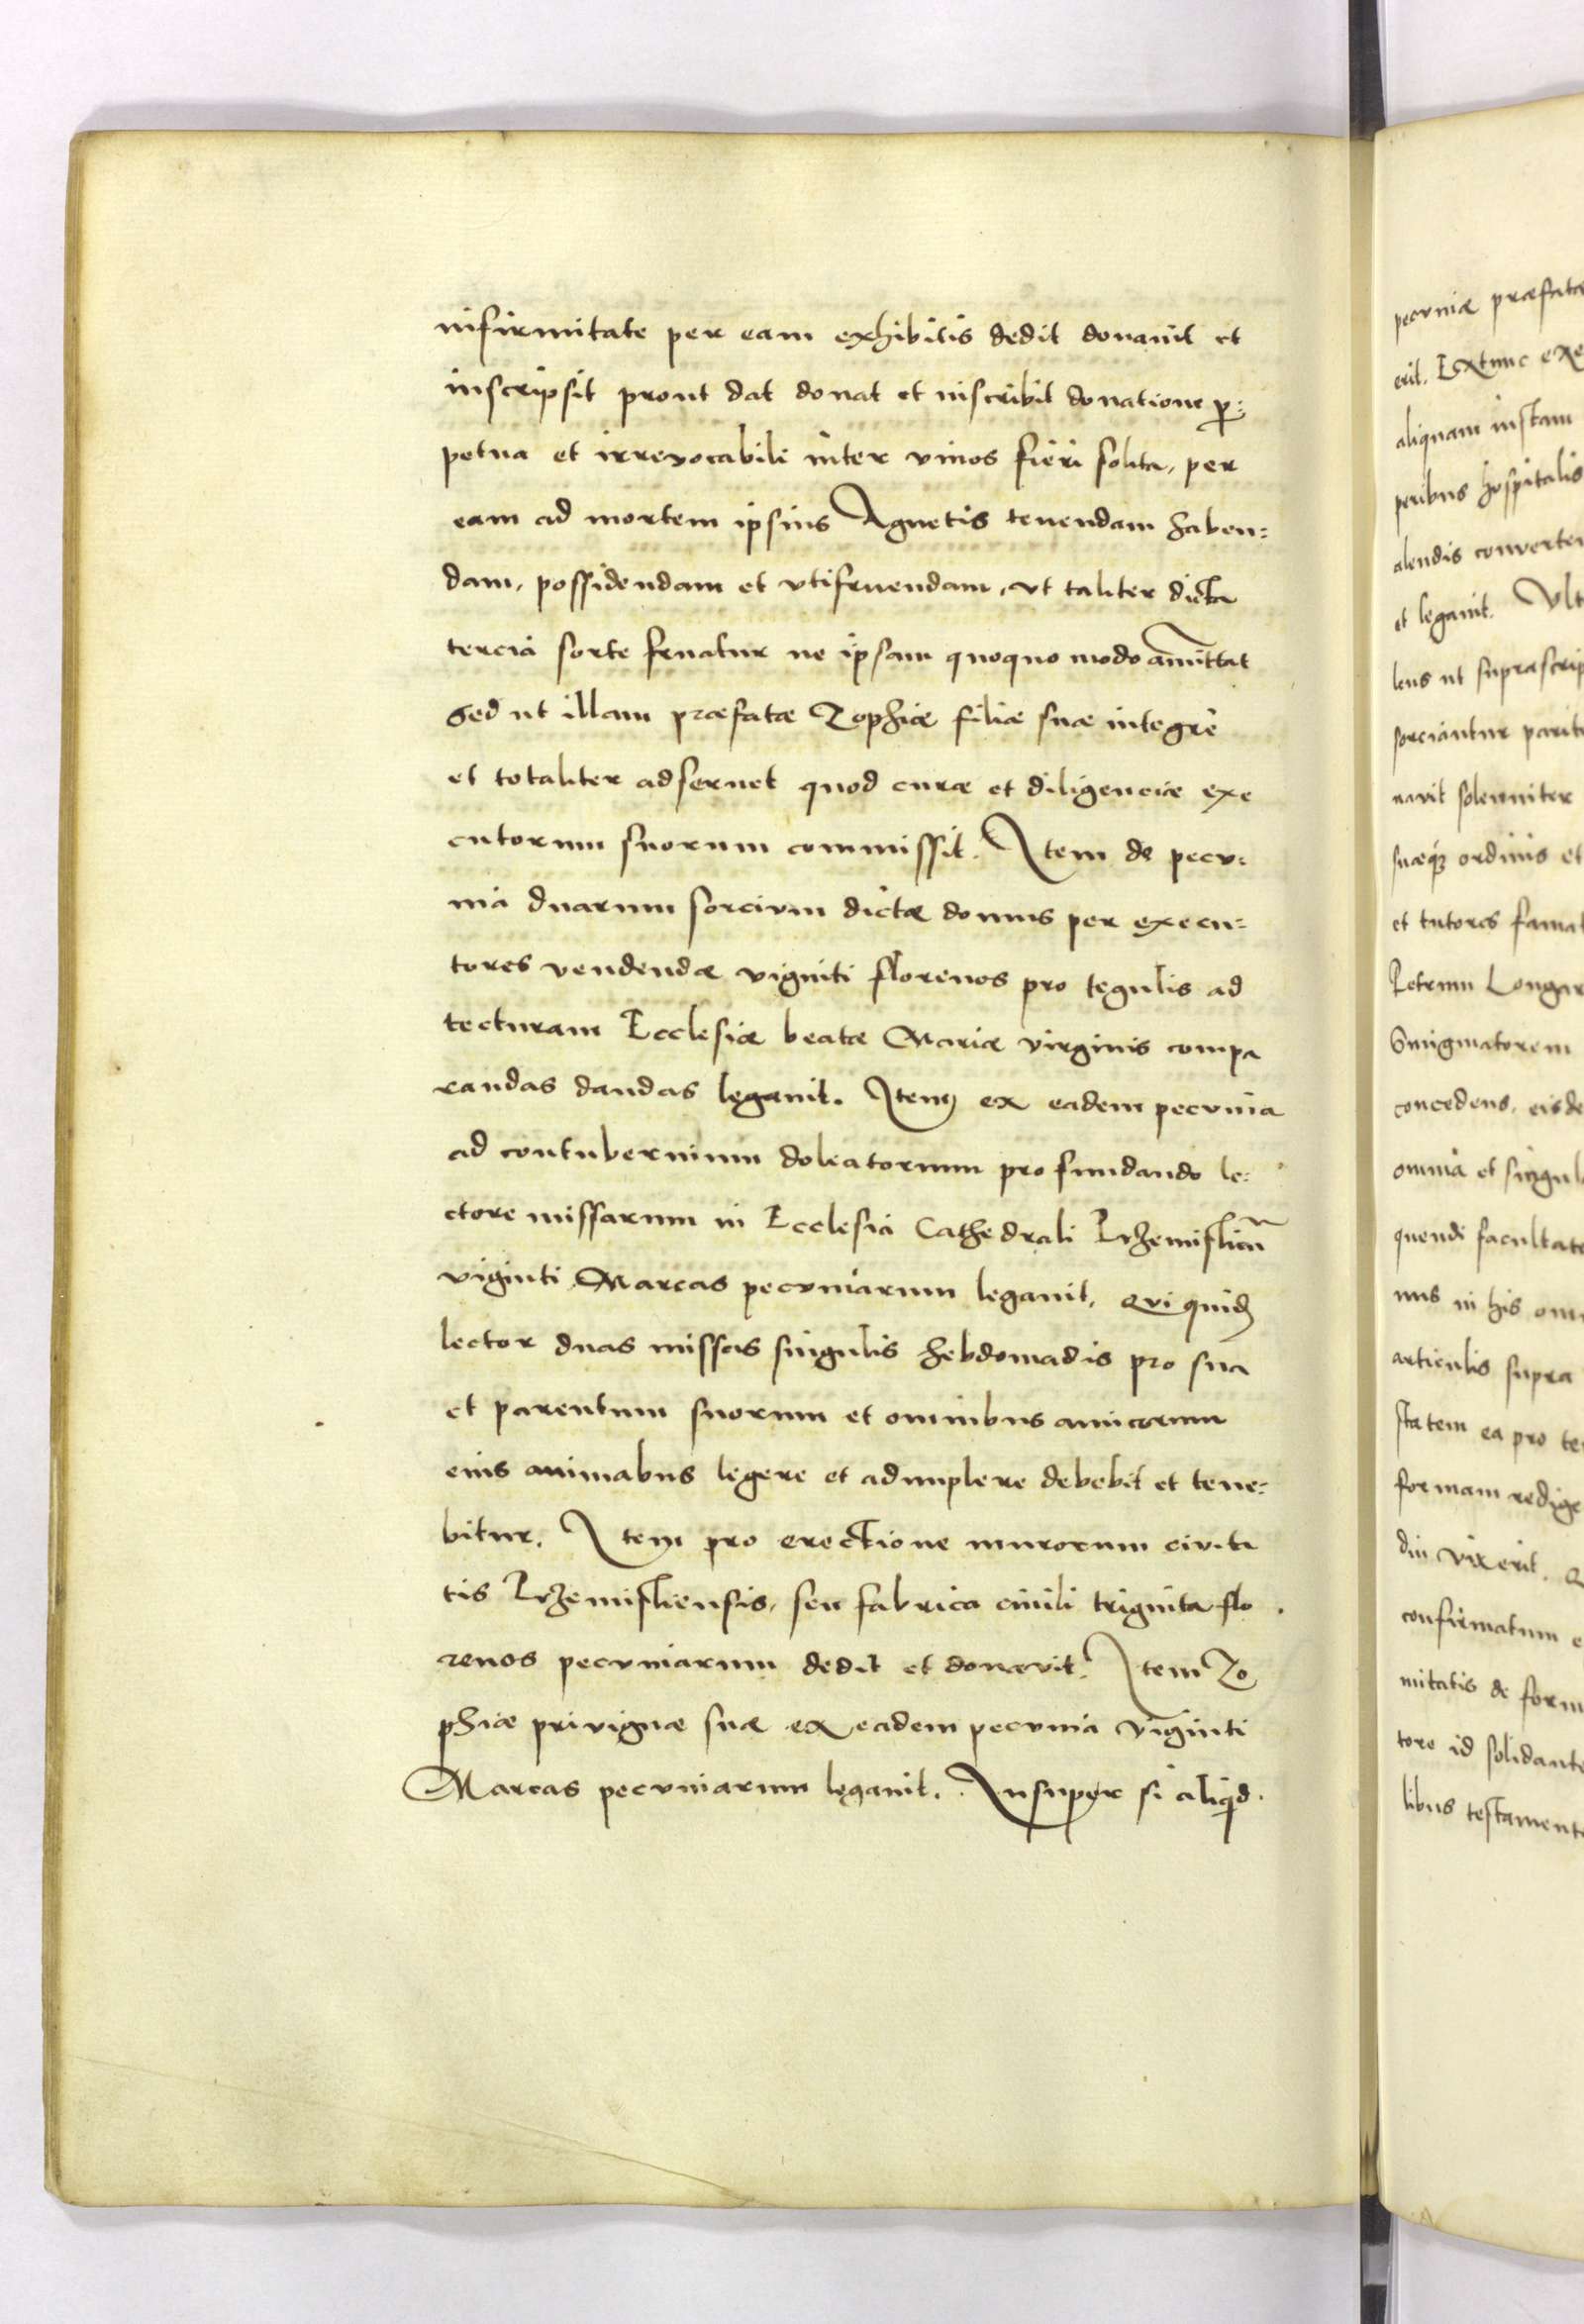 infirmitate per eam exhibitis dedit donauit et
inscripsit prout dat donat et inscribit donatione ꝑ:
petua et irreuocabili inter viuos fieri solita, per
eam ad mortem ipsius Agnetis tenendam haben=
dam, possidendam et vtifruendam, vt taliter dicta
tercia sorte fruatur ne ipsam quoquo modo amittat
Sed ut illam præfatæ Zophiæ filiæ suæ integre
et totaliter adseruet quod curæ et diligenciæ exe
cutorum suorum commissit. Item de pecu:
nia duarum sorcium dictæ domus per execu=
tores vendendæ viginti florenos pro tegulis ad
tecturam Ecclesiæ beatæ Mariæ virginis compa
randas dandas legauit. Item ex eadem pecunia
ad contubernium doleatorum pro fundando le:
ctore missarum in Ecclesia Cathedrali Przemislien̄
viginti Marcas pecuniarum legauit, Qui quidē
lector duas missas singulis hebdomadis pro sua
et parentum suorum et omnibus amicorum
eius animabus legere et adimplere debebit et tene=
bitur. Item pro erectione murorum ciuita
tis Przemisliensis, seu fabrica ciuili triginta flo
renos pecuniarum dedit et donavit. Item Zo
phiæ priuignæ suæ ex eadem pecunia viginti
Marcas pecuniarum legauit. Insuper si aliqid
pecuniæ præfatæ
erit. Extunc exe
aliquam iustam
peribus hospitalis
alendis converten
et legauit. Ult
lens ut suprascrip
sorciantur parit
navit solenniter
suæq; ordinis et
et tutores famat
Petrum Longar
concedens, eisde
omnia et singul
quendi facultate
nus in his om
articulis supra
statem ea pro te
formam redige
diu vixerit. Q
confirmatum e
mitatis de form
tore id solidante
libus testamento